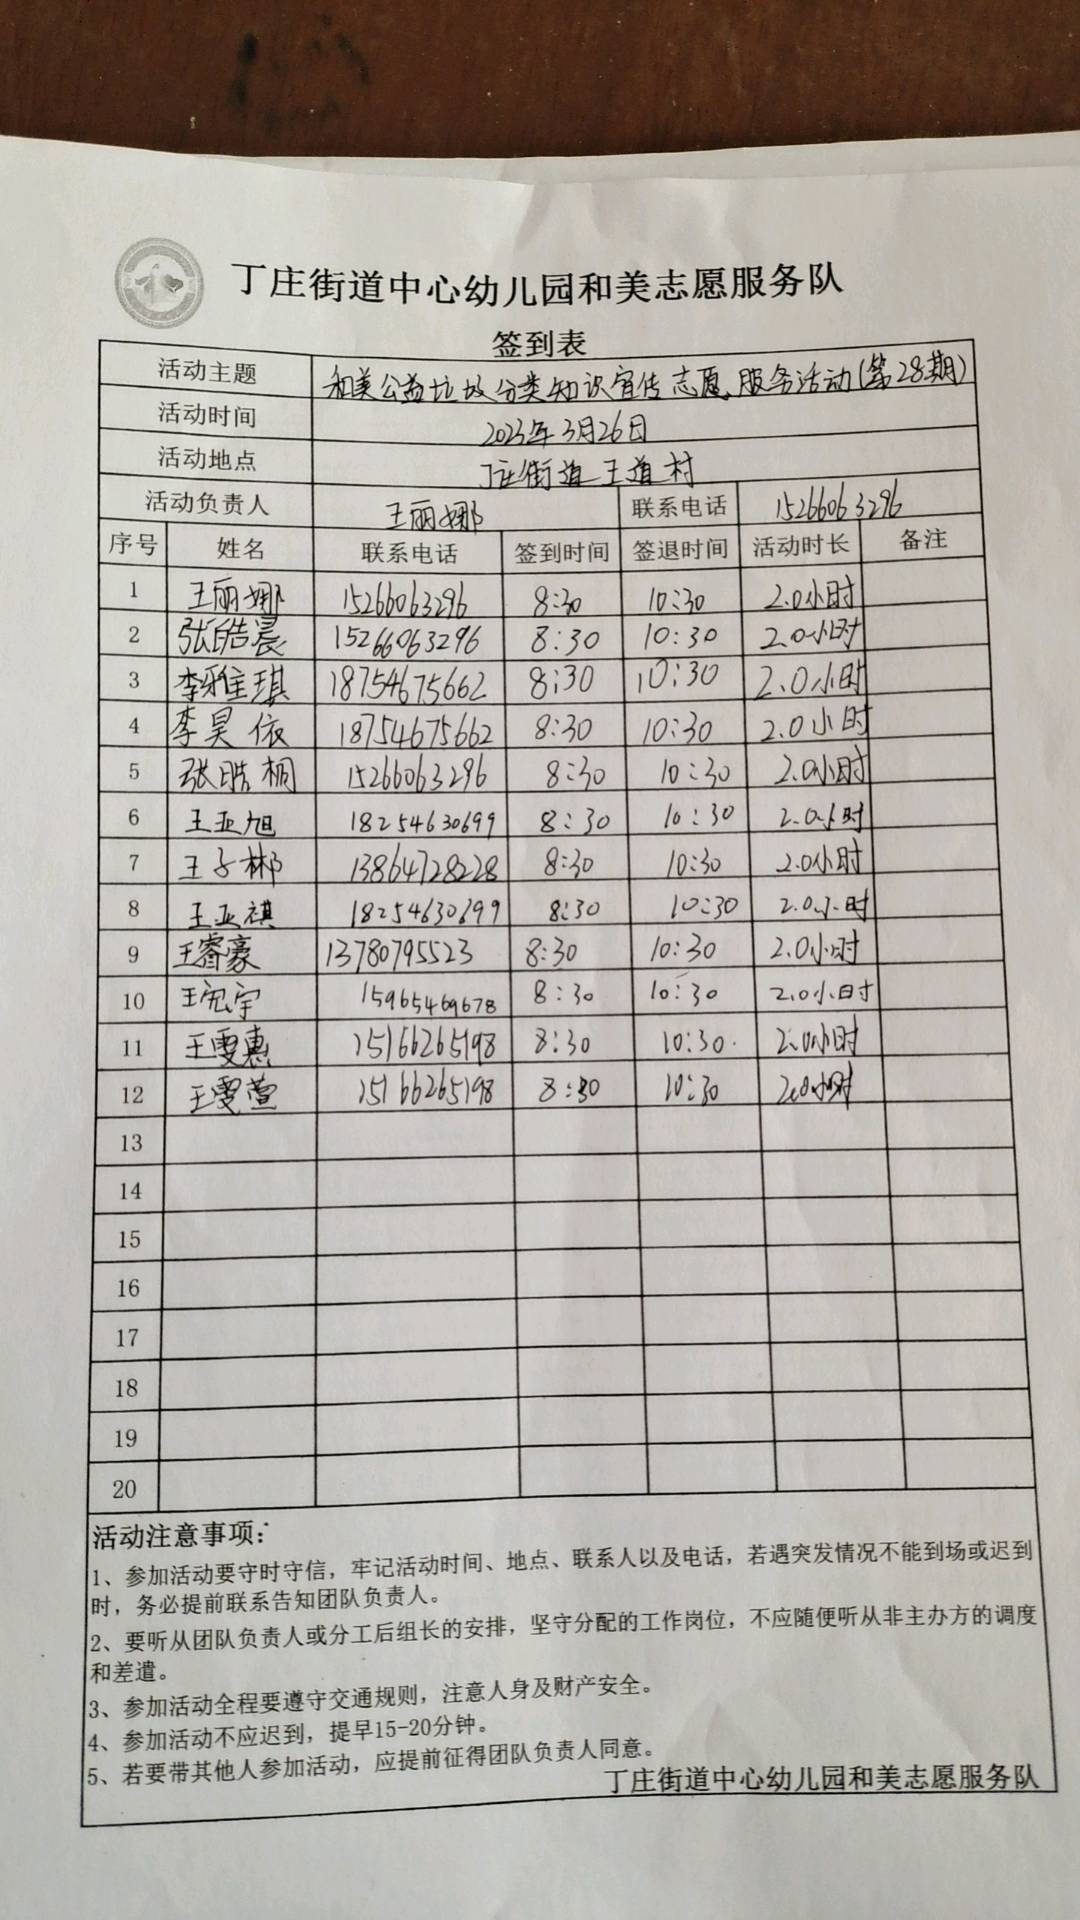 丁庄街道中心幼儿园和美志愿服务队
签到表
活动主题 和美公益垃圾分类知识宣传志愿服务活动(第28期)
活动时间 2023年3月26日
活动地点 丁庄街道王道村
活动负责人 王丽娜 联系电话 15266063296
序号 姓名 联系电话 签到时间 签退时间 活动时长 备注
1 王丽娜 15266063296 8:30 10:30 2.0小时
2 张皓晨 15266063296 8:30 10:30 2.0小时
3 李雅琪 18754675662 8:30 10:30 2.0小时
4 李昊依 18754675662 8:30 10:30 2.0小时
5 张皓桐 15266063296 8:30 10:30 2.0小时
6 王亚旭 18254630699 8:30 10:30 2.0小时
7 王子彬 13864728228 8:30 10:30 2.0小时
8 王亚祺 18254630699 8:30 10:30 2.0小时
9 王睿豪 13780795523 8:30 10:30 2.0小时
10 15965469678 8:30 10:30 2.0小时
11 王雯惠 15166265198 8:30 10:30 2.0小时
12 王雯萱 15166265198 8:30 10:30 2.0小时
13
14
15
16
17
18
19
20
活动注意事项:
1、参加活动要守时守信，牢记活动时间、地点、联系人以及电话，若遇突发情况不能到场或迟到
时，务必提前联系告知团队负责人。
2、要听从团队负责人或分工后组长的安排，坚守分配的工作岗位，不应随便听从非主办方的调度
和差遣。
3、参加活动全程要遵守交通规则，注意人身及财产安全。
4、参加活动不应迟到，提早15-20分钟。
5、若要带其他人参加活动，应提前征得团队负责人同意。
丁庄街道中心幼儿园和美志愿服务队